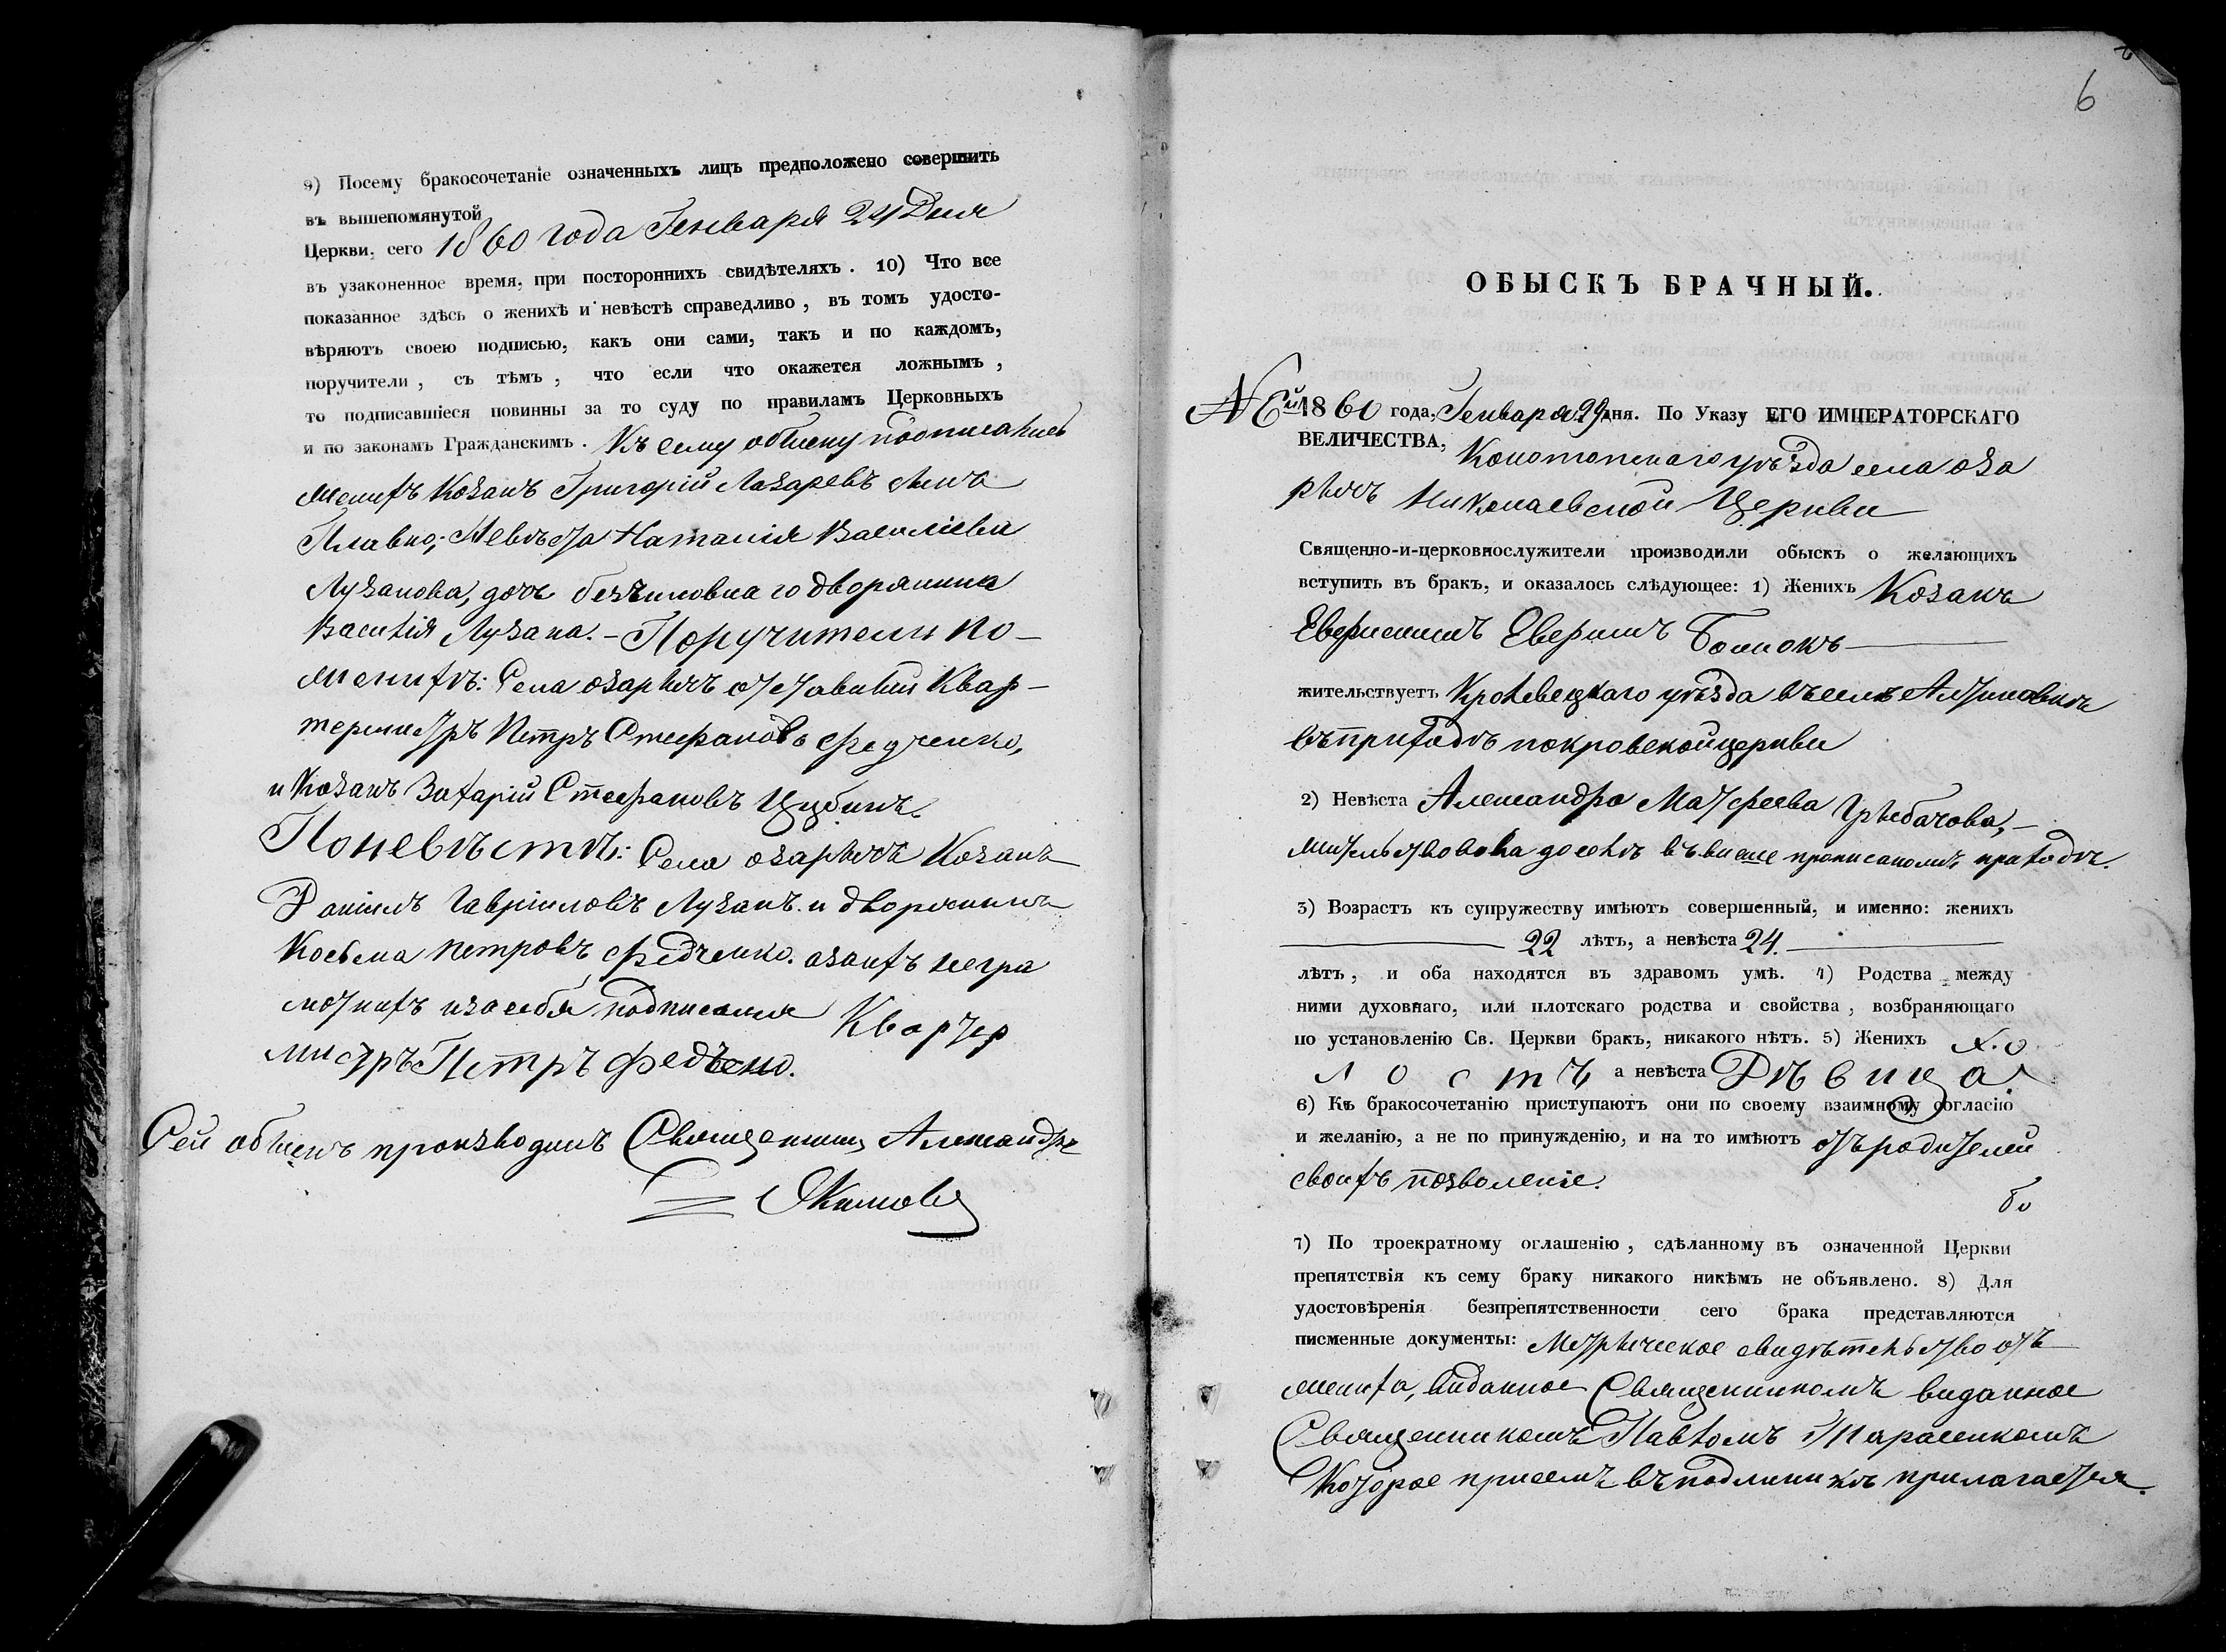 9) Посему бракосочетаніе означенныхъ лицъ предположено совершить
въ вышепомянутой
Церкви, сего 1860 года Генваря 24 Дня
въ узаконенное время, при постороннихъ свидѣтеляхъ. 10) Что все
показанное здѣсь о женихѣ и невѣстѣ справедливо, въ томъ удосто-
вѣряютъ своею подписью, какъ они сами, такъ и по каждомъ,
поручители, съ тѣмъ, что если что окажется ложнымъ,
то подписавшіеся повинны за то суду по правиламъ Церковныхъ
и по законамъ Гражданскимъ. Къ сему обыску подписались
женихъ Козакъ Григорій Лазаревъ сынъ
Плавко; Невѣста Наталія Василіева
Лузанова, дочь безчиновнаго дворянина
Василія Лузана. - Поручители по-
женихѣ: Села озарычъ отставный Квар-
термистръ Петръ Стефановъ Федченко,
и Козакъ Захарій Стефановъ
По невѣстѣ: Села озарычъ Козакъ
Даніилъ Гавріиловъ Лузанъ и дворянинъ
Косьма Петровъ Федченко. а за ихъ негра
мотныхъ и за себя подписался Квартер
мистръ Петръ Федченко.
Сей обыскъ производилъ Священникъ Александръ
Якимовъ
6
ОБЫСКЪ БРАЧНЫЙ.
N 6й 1860 года, Генваря 29 дня. По Указу ЕГО ИМПЕРАТОРСКАГО
ВЕЛИЧЕСТВА, Конотопскаго уѣзда села оза
рычъ Николаевской Церкви
Священно-и-церковнослужители производили обыскъ о желающихъ
вступить въ бракъ, и оказалось слѣдующее: 1) Женихъ Козакъ
жительствуетъ Кролевецкаго уѣзда въ селѣ Алтыновкѣ
въ приходѣ покровской церкви
2) Невѣста Александра Матфеева Грыбачова, -
жительствовала доселѣ въ више прописаномъ приходѣ.
3) Возрастъ къ супружеству имѣютъ совершенный, и именно: женихъ
22 лѣтъ, а невѣста 24.
лѣтъ, и оба находятся въ здравомъ умѣ. 4) Родства между
ними духовнаго, или плотскаго родства и свойства, возбраняющаго
по установленію Св. Церкви бракъ, никакого нѣтъ. 5) Женихъ Хо
лостъ а невѣста Дѣвица.
6) Къ бракосочетанію приступаютъ они по своему взаимному согласію
и желанію, а не по принужденію, и на то имѣютъ отъ родителей
своихъ позволеніе.
7) По троекратному оглашенію, сдѣланному въ означенной Церкви
препятствія къ сему браку никакого никѣмъ не объявлено. 8) Для
удостовѣренія безпрепятственности сего брака представляются
писменные документы: Метрическое свидѣтельство отъ
жениха, виданное Священникомъ виданное
Священникомъ Павломъ Тарасенкомъ
Которое при семъ въ подлинникѣ прилагается.